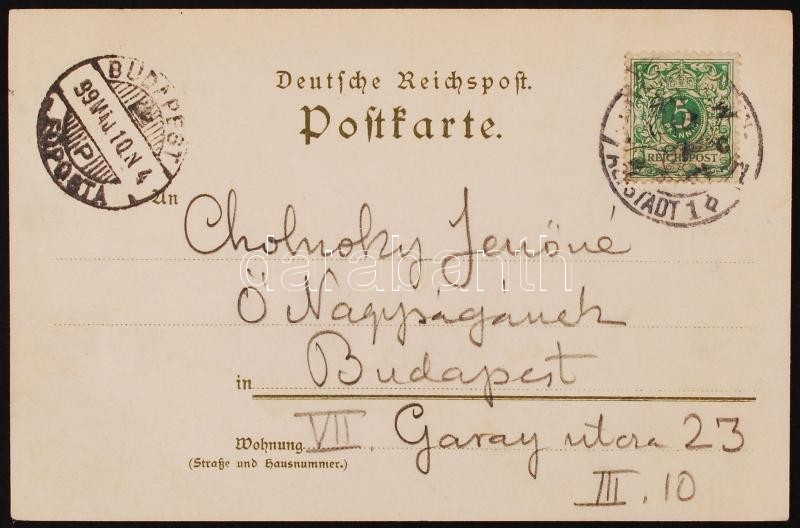 Deutsche Reichspost.
Postkarte.
BUDAPEST
99 MÁJ 10. N 4
P
FŐPOSTA
5
REICHSPOST
STADT 1 b
An
Cholnoky Jenőné
Ő Nagyságának
in Budapest
Wohnung VII. Garay utca 23
(Straße und Hausnummer.)
III. 10
darabanth